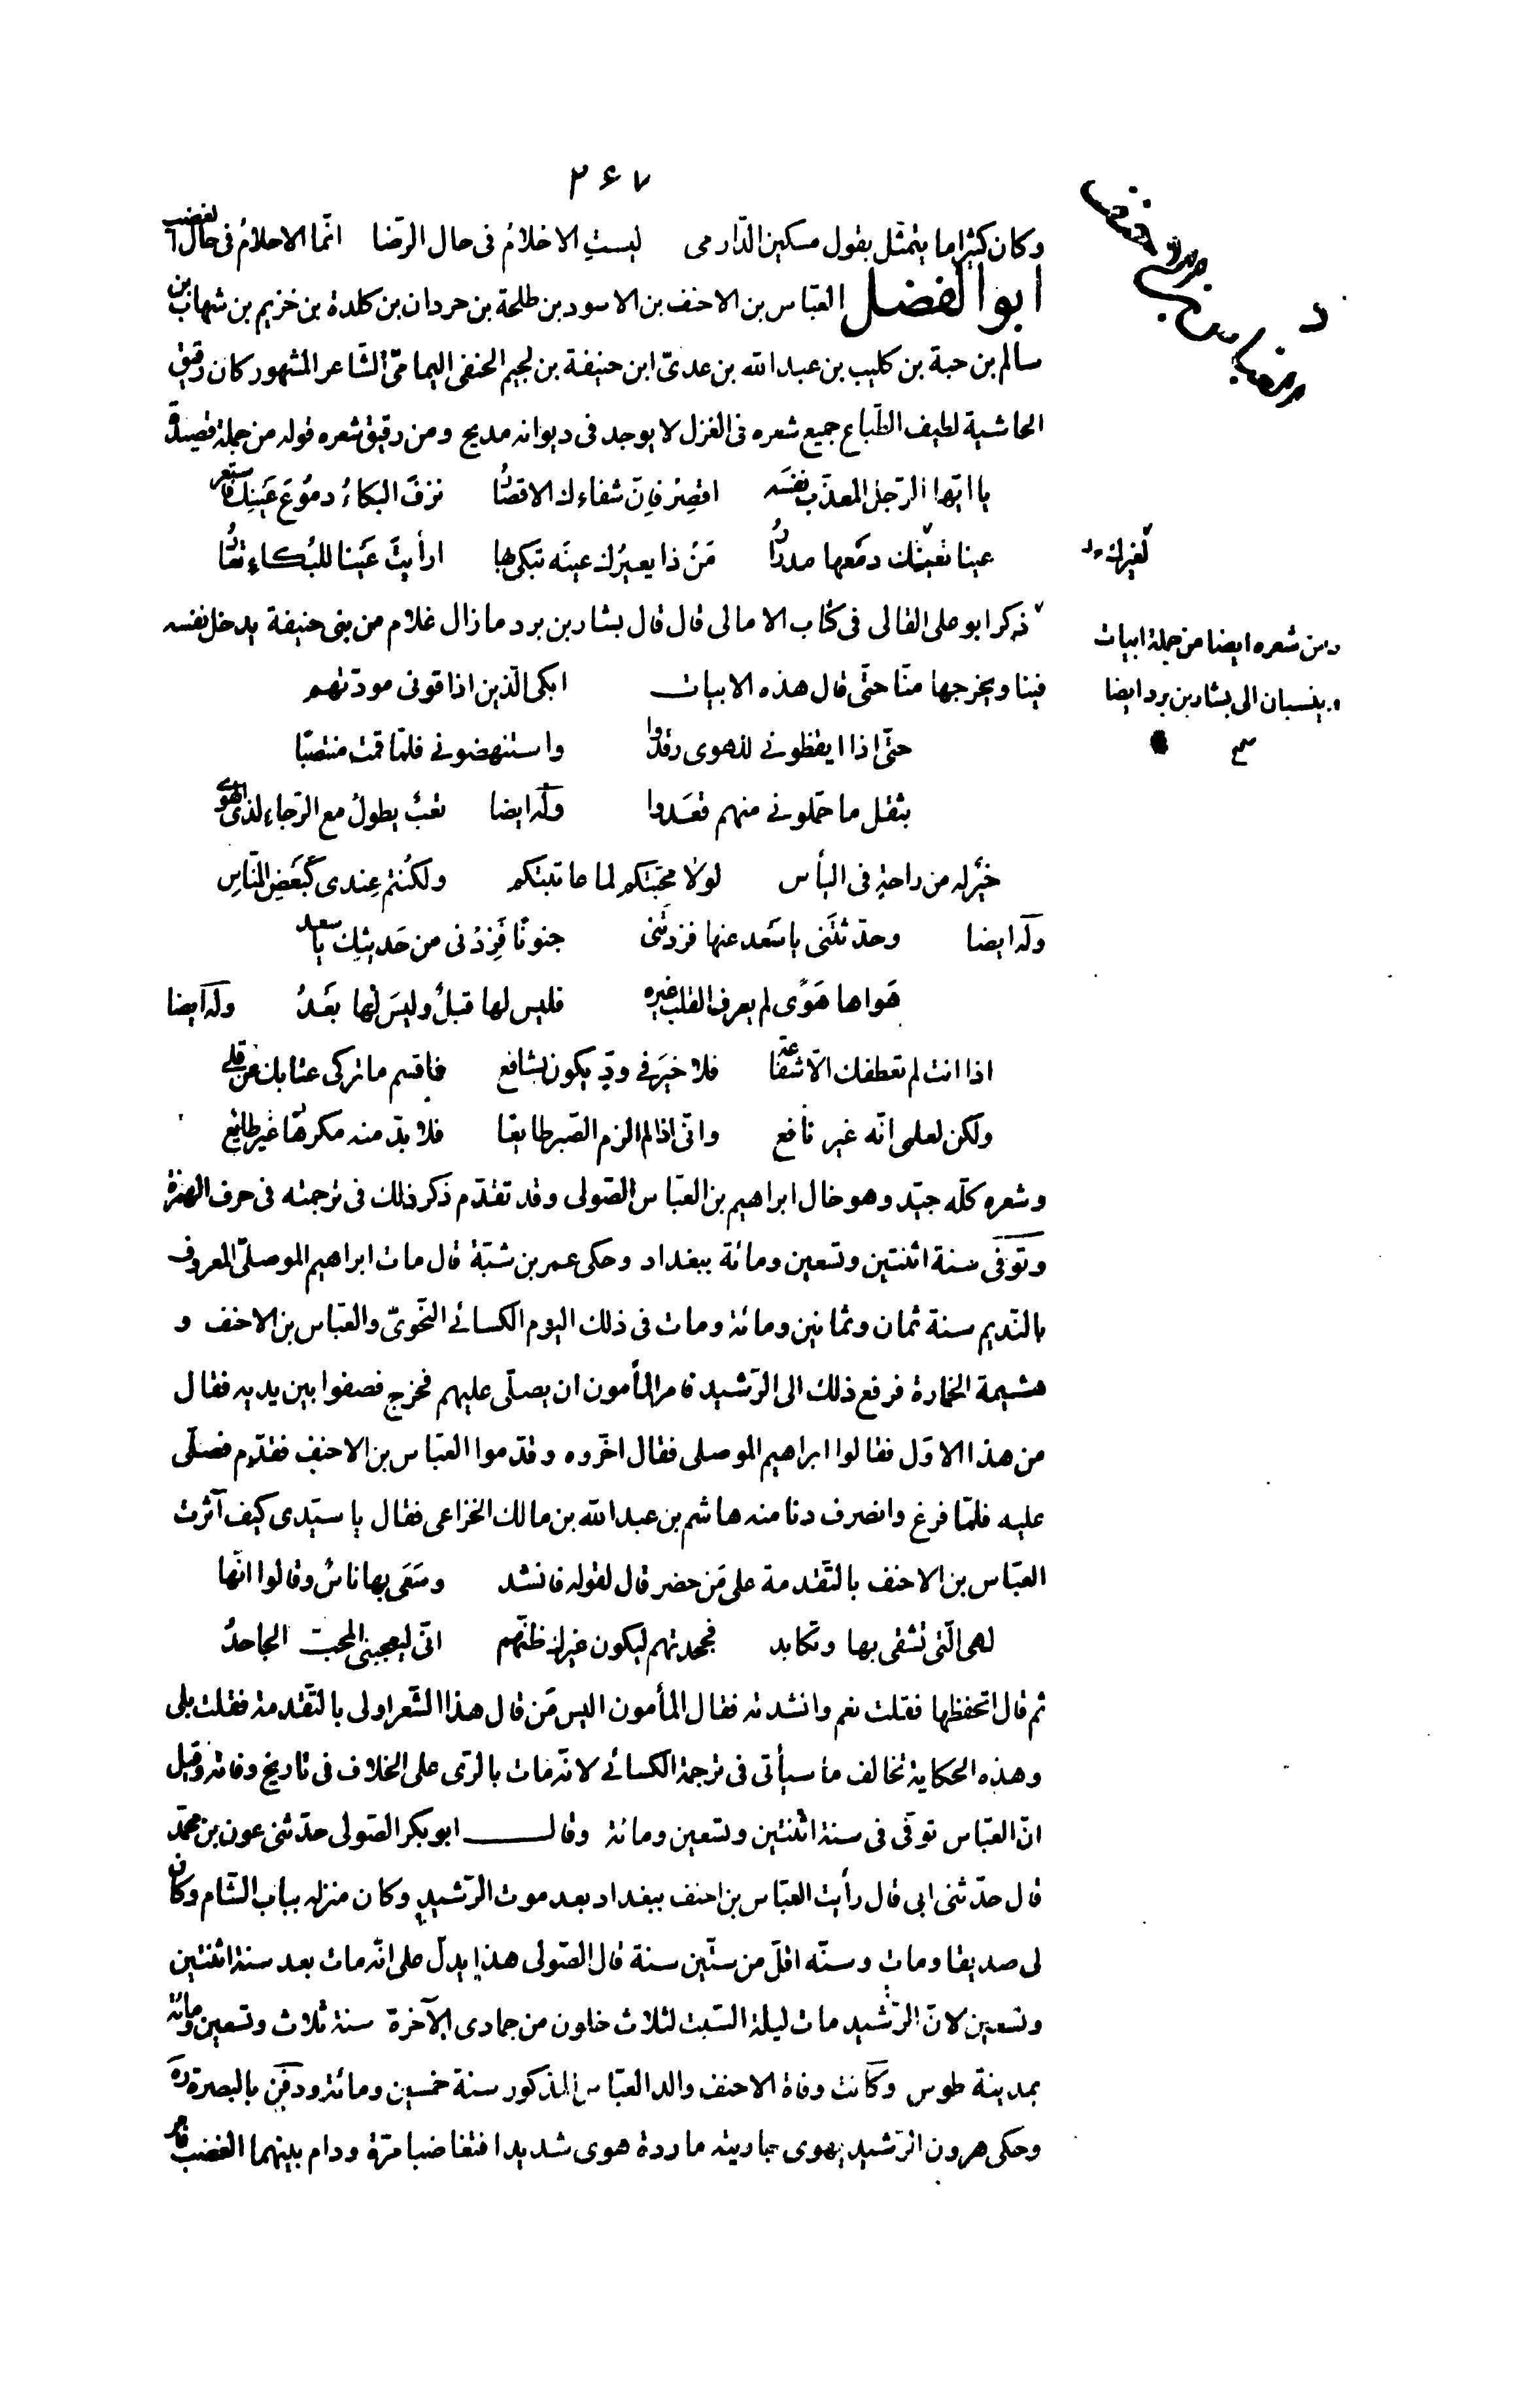 ٢٦٧
وكان كثيرا ما يتمثل بقول مسكين الدّارمى ليستِ الاحلامُ فى حال الرّضا انّما الاحلامُ فى حال الغضب
ابوالفضل العبّاس بن الاحنف بن الاسود بن طلحة بن حردان بن كلدة بن خزيم بن شهاب بن
سالم بن حبة بن كليب بن عبد الله بن عدىّ ابن حنيفة بن لجيم الحنفى اليمامىّ الشّاعر المشهور كان رقيق
الحاشية لطيف الطّباع جميع شعره فى الغزل لا يوجد فى ديوانه مديح ومن رقيق شعره قوله من جملة قصيدة
يا ايّها الرّجل المعذّب نفسَه اقصِرْ فاِنّ شفاءك الاقصارُ نزفَ البكاءُ دموُعَ عَينِك فاستعر
عينا تعينك دمَعها مدرارُ مَنْ ذا يعيرُك عينَه تبكى بها ارأيتَ عَينا للبُكاءِ تعارُ
ذكر ابو على القالى فى كتاب الامالى قال قال بشار بن برد ما زال غلام من بنى حنيفة يدخل نفسه
فينا ويخرجها منّا حتّى قال هذه الابيات ابكى الّذين اذاقونى مودّتهم
حتّى اذا ايقظونى للهوى رقدوا واستنهضونى فلمّا قمت منتصبًا
بثقل ما حمّلونى منهم قعَدوا وله ايضا تعبٌ يطولُ مع الرّجاء لذى الهوى
خيٌر له من راحةٍ فى اليأس لولا محبّتكم لما عاتبتكم ولكُنتم عِندى كبَعضِ النّاسِ
وله ايضا وحدّثتَنى يا سَعد عنها فزدتَنى جنونًا فَزِدْنى من حَديثِك يا سعد
هَواها هَوًى لم يعرف القلب غيره فليس لها قبلُ وليسَ لها بَعدُ وله ايضا
اذا انت لم تعطفك الّا شفاعة فلا خيَر فى ودٍّ يكون بشافع فاقسم ما تركى عتابك عن قلى
ولكن لعلمى انّه غير نافع وانّى اذا لم الزم الصّبر طايعًا فلا بدّ منه مكرهًا غير طائع
وشعره كلّه جيّد وهو خال ابراهيم بن العبّاس الصّولى وقد تقدّم ذكر ذلك فى ترجمته فى حرف الهمزة
وتوفّى سنة اثنتين وتسعين ومائة ببغداد وحكى عمر بن شبّة قال مات ابراهيم الموصلىّ المعروف
بالنّديم سنة ثمان وثمانين ومائة ومات فى ذلك اليوم الكسائى النّحوىّ والعبّاس بن الاحنف و
هشيمة الخمارة فرفع ذلك الى الرّشيد فامر المأمون ان يصلّى عليهم فخرج فصفوا بين يديه فقال
من هذا الاوّل فقالوا ابراهيم الموصلى فقال اخّروه وقدّموا العبّاس بن الاحنف فقدّم فصلّى
عليه فلمّا فرغ وانصرف دنا منه هاشم بن عبد الله بن مالك الخزاعى فقال يا سيّدى كيف آثرت
العبّاس بن الاحنف بالتّقدمة على مَن حضر قال لقوله فانشد وسَعَى بها ناسٌ وقالوا انّها
لهى الّتى تشقى بها وتكابد فجحدتهم ليكون غيرك ظنّهم انّى ليعجبنى المحبّ الجاحدُ
ثم قال اتحفظها فقلت نعم وانشدته فقال المأمون اليس مَن قال هذا الشّعر اولى بالتّقدمة فقلت بلى
وهذه الحكاية تخالف ما سيأتى فى ترجمة الكسائى لانّه مات بالرّى على الخلاف فى تاريخ وفاته وقيل
انّ العبّاس توفّى فى سنة اثنتين وتسعين ومائة وقال ابوبكر الصّولى حدّثنى عون بن محمّد
قال حدّثنى ابى قال رأيت العبّاس بن احنف ببغداد بعد موت الرّشيد وكان منزله بباب الشّام وكان
لى صديقا ومات وسنّه اقلّ من ستّين سنة قال الصّولى هذا يدلّ على انّه مات بعد سنة اثنتين
وتسعين لانّ الرّشيد مات ليلة السّبت لثلاث خلون من جمادى الآخرة سنة ثلاث وتسعين ومائة
بمدينة طوس وكانت وفاة الاحنف والد العبّاس المذكور سنة خمسين ومائة ودفن بالبصرة ره
وحكى هرون الرّشيد يهوى جاريته ماردة هوى شديدا فتغاضبا مرّة ودام بينهما الغضب فامر
لغيرك
ومن شعره ايضا من جملة ابيات
وينسبان الى بشار بن برد ايضا
صح